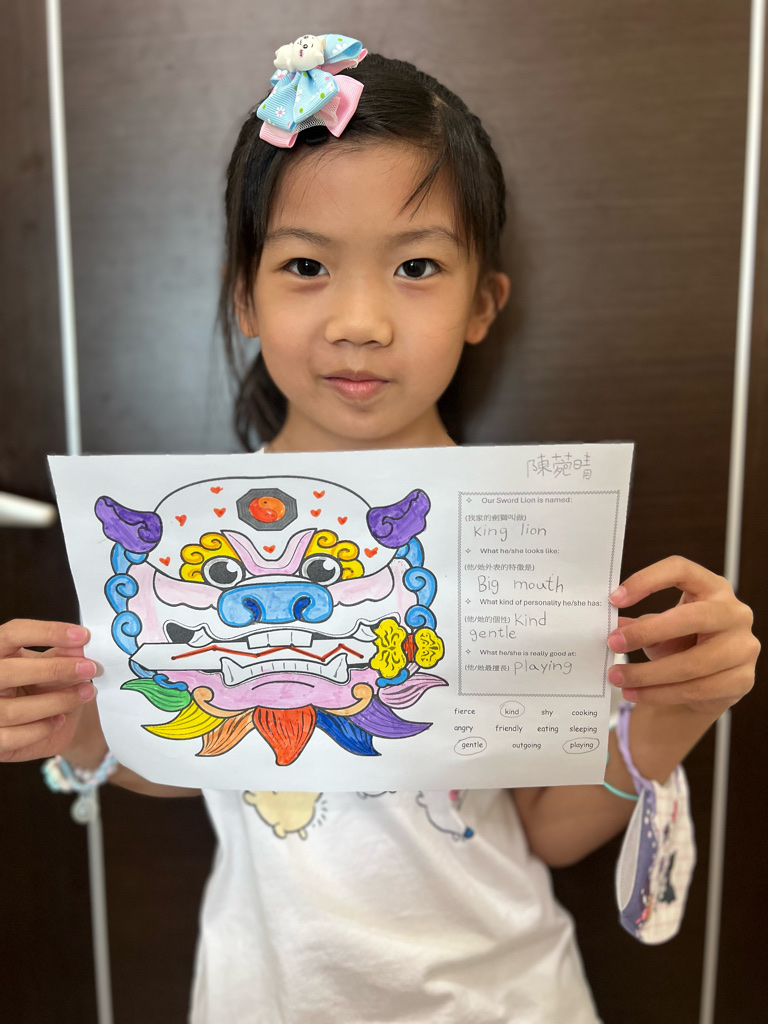 陳菀晴
✧ Our Sword Lion is named:
(我家的劍獅叫做)
King lion
✧ What he/she looks like:
(他/她外表的特徵是)
Big mouth
✧ What kind of personality he/she has:
(他/她的個性) kind
gentle
✧ What he/she is really good at:
(他/她最擅長) playing
fierce kind shy cooking
angry friendly eating sleeping
gentle outgoing playing